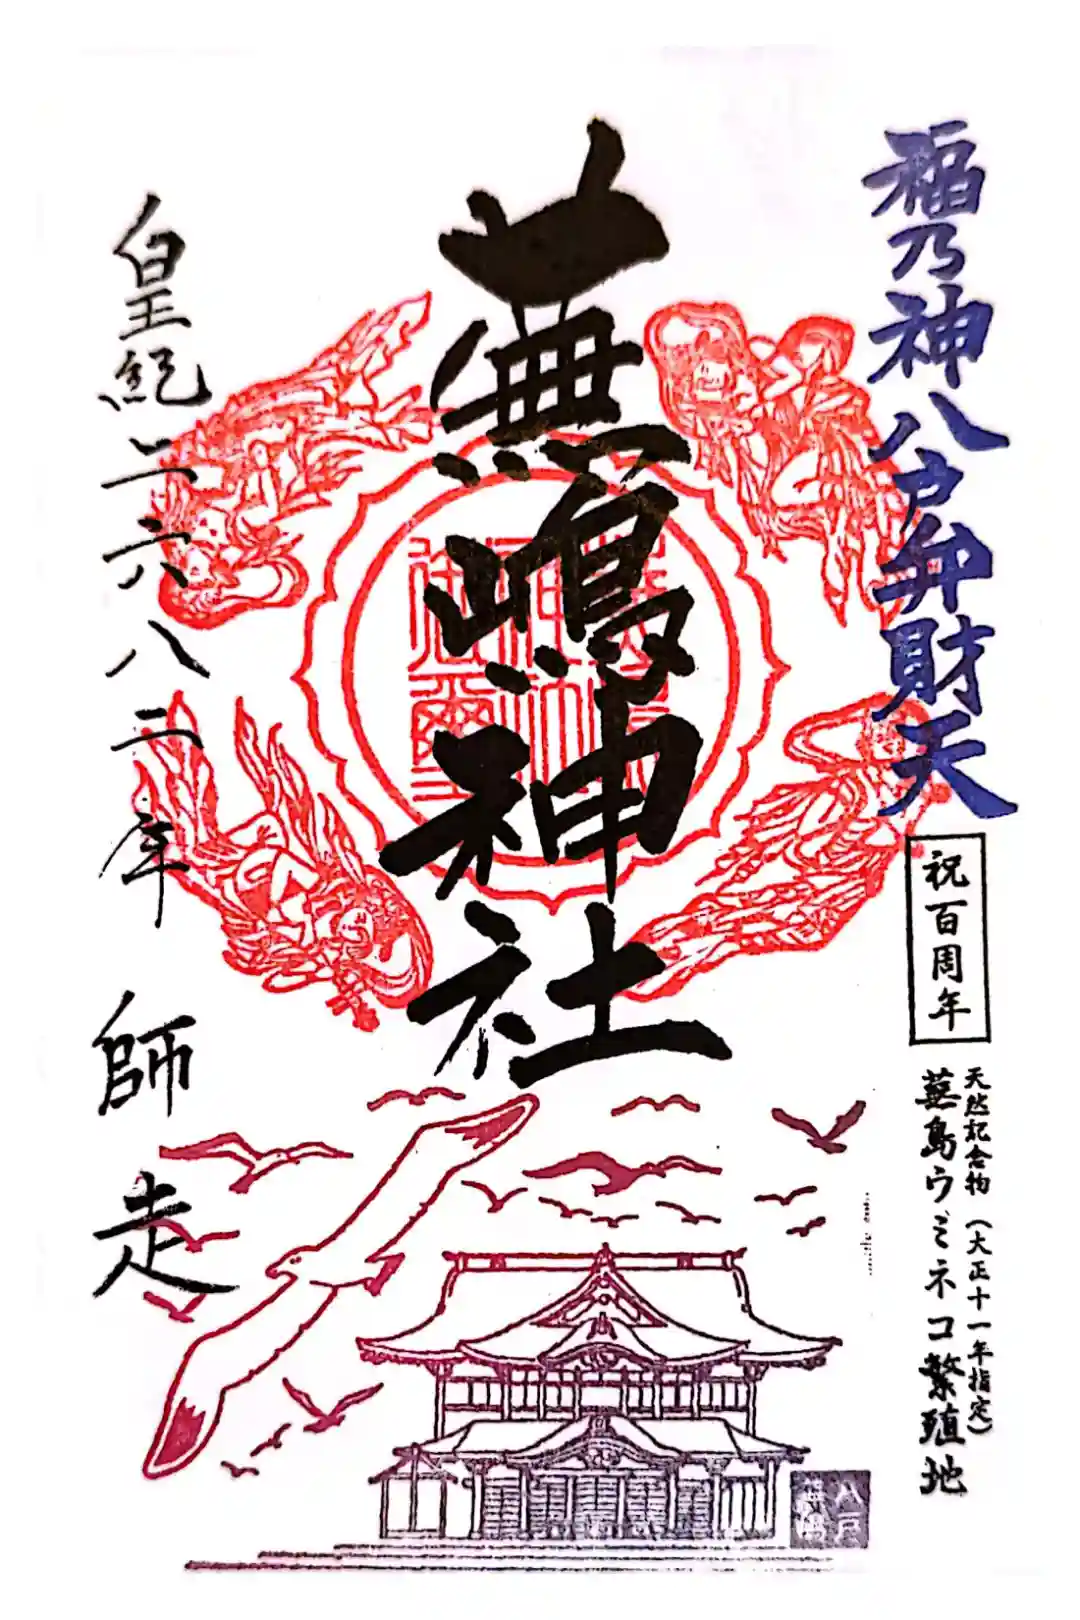 福乃神八戸弁財天
祝百周年
天然記念物(大正十一年指定)
蕪島ウミネコ繁殖地
蕪嶋神社
皇紀二六八二年
師走
八戸
蕪嶋